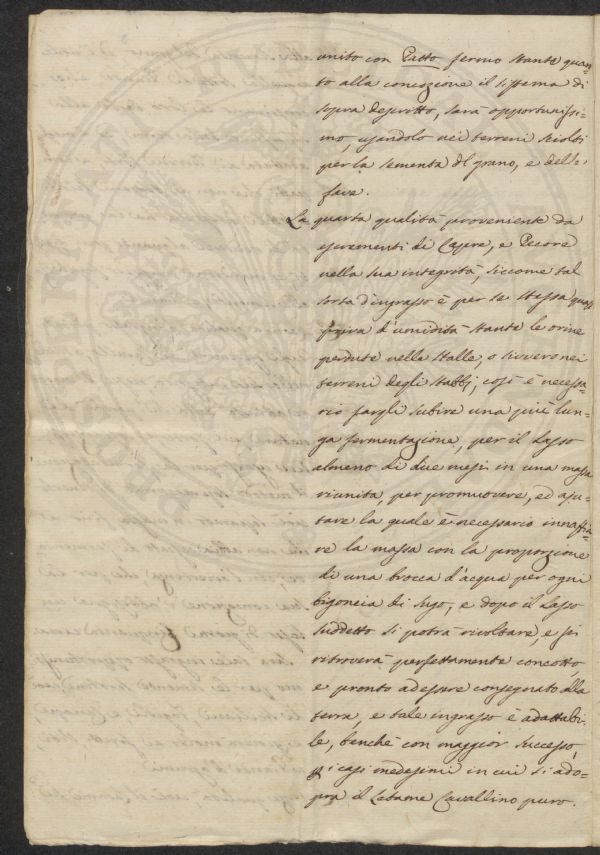 unito con Patto fermo stante quan=
to alla concozione il sistema di
sopra descritto, sarà opportunissi=
mo, usandolo nei terreni sciolti
per la sementa del grano, e delle
fave.
La quarta qualità proveniente da
escrementi di Capre, e Pecore
nella sua integrità, siccome tal
sorta d'ingrasso è per se stessa quasi
priva d'umidità stante le orine
perdute nella stalle, o sivvero nei
terreni degli stabbj, così è necessa=
rio fargli subire una più lun=
ga fermentazione, per il lasso
almeno di due mesi in una massa
riunita, per promuovere, ed aju=
tare la quale è necessario innaffia=
re la massa con la proporzione
di una brocca d'acqua per ogni
bigoncia di sugo, e dopo il lasso
suddetto si potrà ricoltare, e si
ritroverà perfettamente concotto,
e pronto ad essere consegnato alla
terra, e tale ingrasso è adattabi=
le, benchè con maggior successo,
ai casi medesimi in cui si ado=
pra il Letame Cavallino puro.